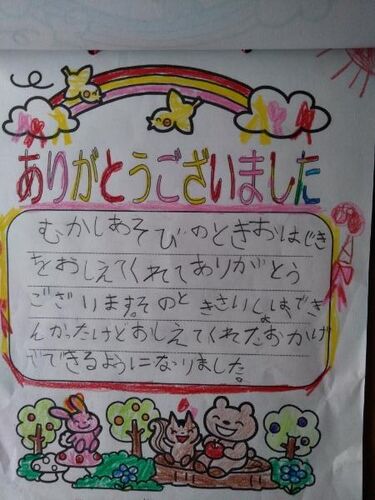 ありがとうございました
むかしあそびのときおはじき
をおしえてくれてありがとう
ございます。そのときさいしょはでき
んかったけどおしえてくれたおかげ
でできるようになりました。